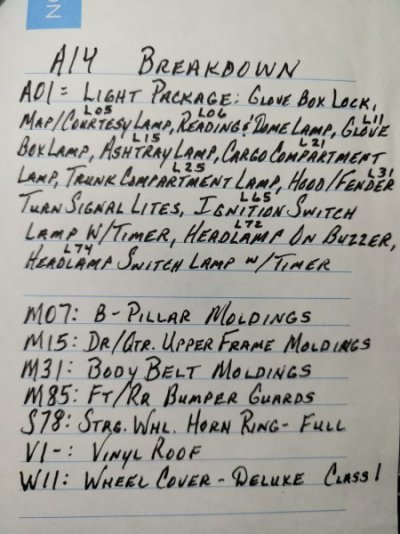 NO
A14 BREAKDOWN
A01 = LIGHT PACKAGE: GLOVE BOX LOCK,
L05 L06 L11
MAP/COURTESY LAMP, READING & DOME LAMP, GLOVE
L15 L21
BOX LAMP, ASHTRAY LAMP, CARGO COMPARTMENT
L25 L31
LAMP, TRUNK COMPARTMENT LAMP, HOOD/FENDER
L65
TURN SIGNAL LITES, IGNITION SWITCH
L72
LAMP W/TIMER, HEADLAMP ON BUZZER,
L74
HEADLAMP SWITCH LAMP W/TIMER
M07: B-PILLAR MOLDINGS
M15: DR/QTR. UPPER FRAME MOLDINGS
M31: BODY BELT MOLDINGS
M85: FT/RR BUMPER GUARDS
S78: STRG. WHL. HORN RING - FULL
V1-: VINYL ROOF
W11: WHEEL COVER - DELUXE CLASS 1